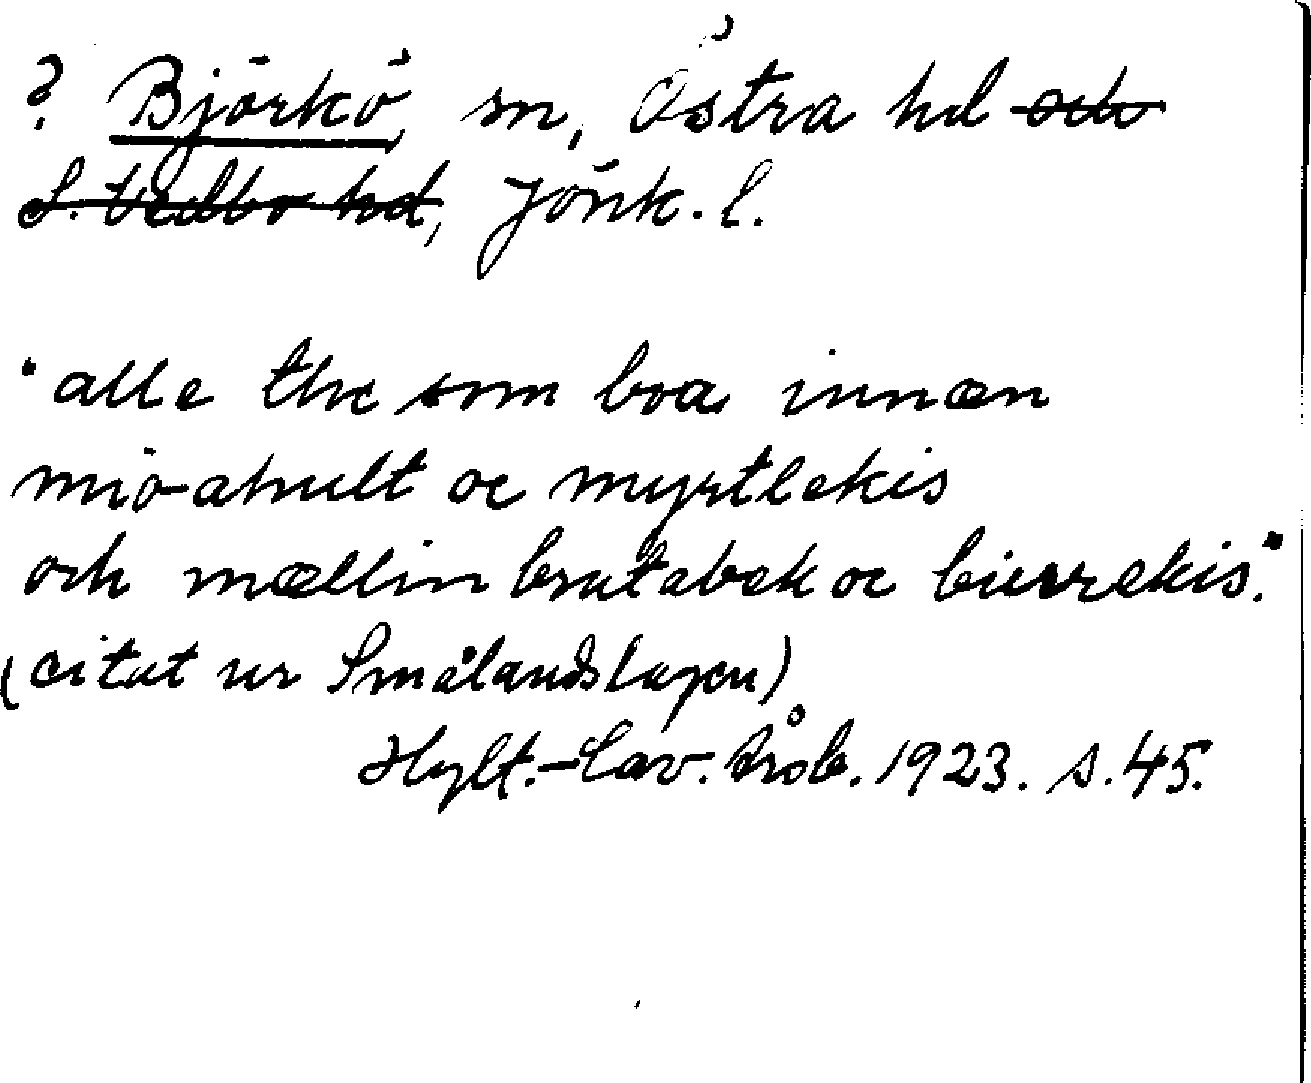 ? Björkö, sn, Östra hd och
S. Vedbo hd, Jönk. l.
"alle the som boa innæn
miöahult oc myrtlekis
och mællin brutabek oc bierrekis."
(citat ur Smålandslagen)
Hylt.-Cav. årsb. 1923. s. 45.